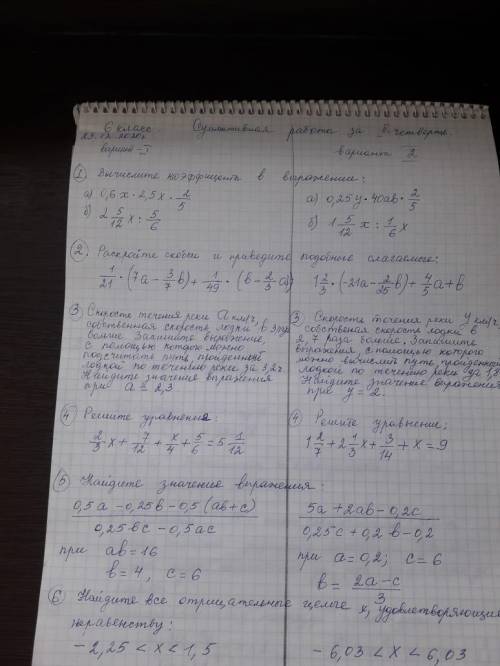 6 класс Суммативная работа за II четверть.
вариант - I вариант 2
① Вычислите коэффициент в выражении:
а) 0,6x · 2,5x · 2/5 а) 0,25y · 40ab · 2/5
б) 2 5/12 x : 5/6 б) 1 5/12 x : 1/6 x
② Раскройте скобки и приведите подобные слагаемые:
1/21 · (7a - 3/7 b) + 1/49 · (b - 2/3 a) 1 2/3 · (-21a - 2/25 b) + 4/5 a + b
③ Скорость течения реки a км/ч, ③ Скорость течения реки y км/ч,
собственная скорость лодки в 3 раза собственая скорость лодки в
больше. Запишите выражение, 2,7 раза больше. Запишите
с помощью которого можно выражения, с помощью которого
подсчитать путь, пройденный можно вычислить путь пройденный
лодкой по течению реки за 3,2 ч. лодкой по течению реки за 1,8
Найдите значение выражения Найдите значение выражения
при a = 2,3 при y = 2.
④ Решите уравнения: ④ Решите уравнение:
2/3 x + 7/12 + x/4 + 5/6 = 5 1/12 1 2/7 + 2 1/3 x + 3/14 + x = 9
⑤ Найдите значение выражения:
0,5a - 0,25b - 0,5(ab + c) 5a + 2ab - 0,2c
0,25bc - 0,5ac 0,25c + 0,2b - 0,2
при ab = 16 при a = 0,2; c = 6
b = 4, c = 6 b = 2a - c / 3
⑥ Найдите все отрицательные целые x, удовлетворяющие
неравенству:
- 2,25 < x < 1,5 - 6,03 < x < 6,03